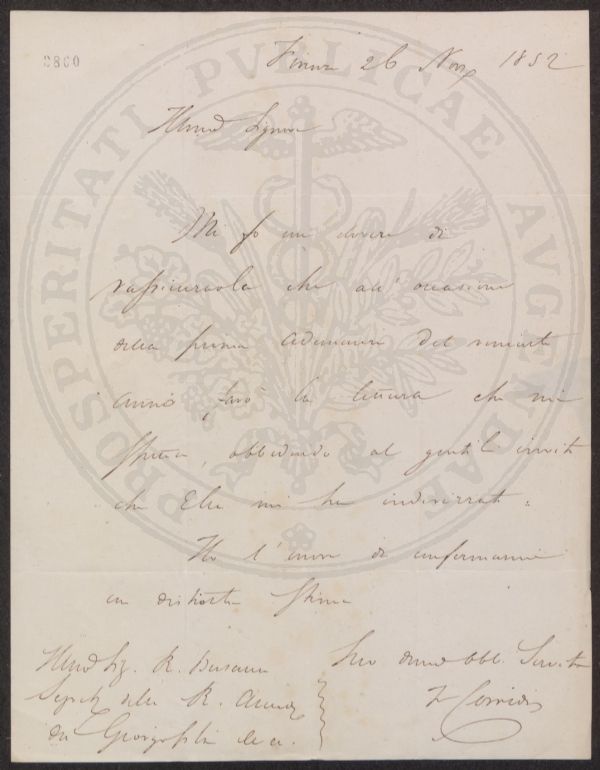 2860
PROSPERITATI PVBLICAE AVGENDAE
Firenze 26 Nov. 1852
Illmo Signore
Mi fo un dovere di
rassicurarla che all'occasione
della prima adunanza del venient
anno farò la lettura che mi
spetta, obbedendo al gentile invito
che Ella mi ha indirizzato =
Ho l'onore di confermarmi
con distinta stima
Illmo Sig. R.
Segret. della R. Accad.
dei Georgofili ec. ec.
Suo devmo obbl. Servitore
F. Corridi